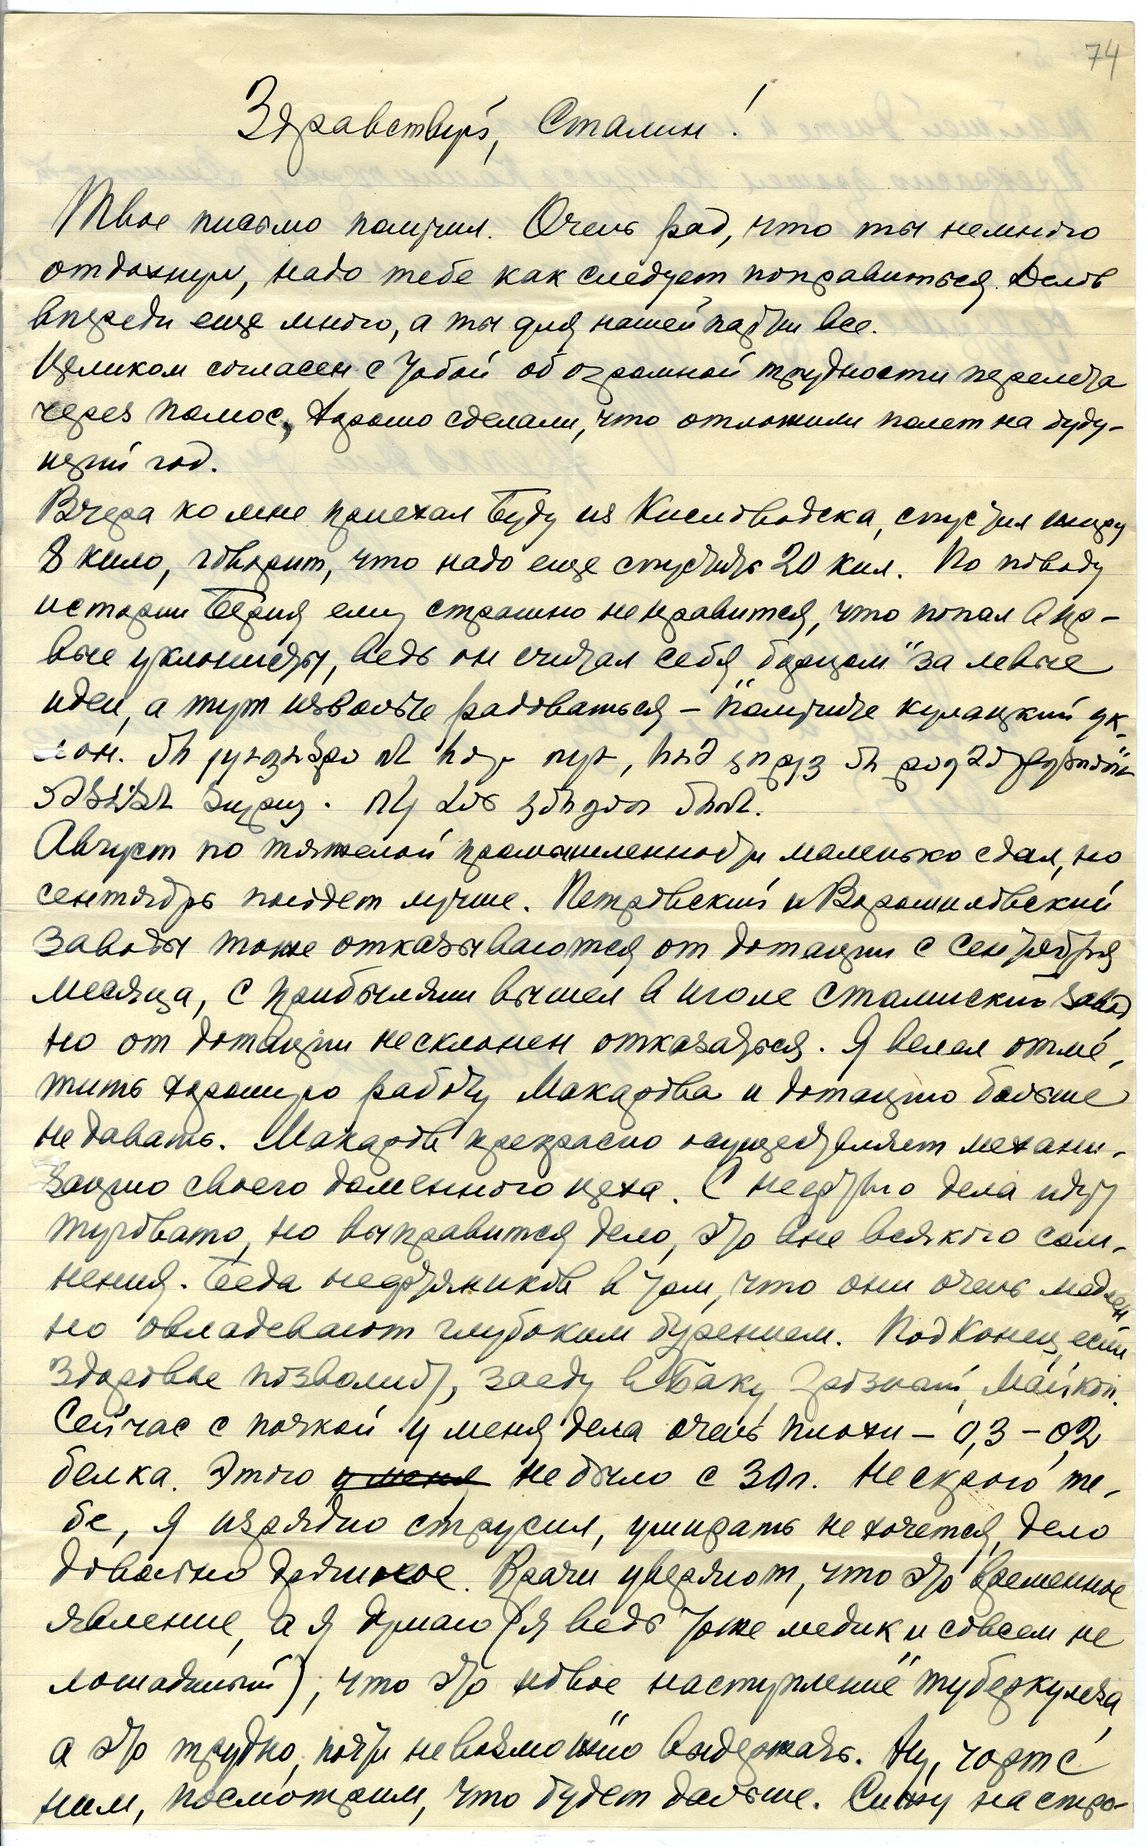 74
Здравствуй, Сталин!
Твое письмо получил. Очень рад, что ты немного
отдохнул, надо тебе как следует поправиться. Делов
впереди еще много, а ты для нашей партии все.
Целиком согласен с тобой об огромной трудности перелета
через полюс, хорошо сделали, что отложили полет на буду-
щий год.
Вчера ко мне приехал Буду из Кисловодска, спустил жиру
8 кило, говорит, что надо еще спустить 20 кил. По поводу
истории Берия ему страшно не нравится, что попал в пр-
вые уклонисты, ведь он считал себя „борцом" за левые
идеи, а тут извольте радоваться – „получите кулацкий ук-
лон.
Август по тяжелой промышленности маленько сдал, но
сентябрь пойдет лучше. Петровский и Ворошиловский
заводы тоже отказываются от дотации с сентября
месяца, с прибылями вышел в июле Сталинский завод,
но от дотации несклонен отказаться. Я велел отме-
тить хорошую работу Макарова и дотацию больше
не давать. Макаров прекрасно осуществляет механи-
зацию своего доменного цеха. С нефтью дела идут
туговато, но выправится дело, это вне всякого сом-
нения. Беда нефтяников в том, что они очень медлен-
но овладевают глубоким бурением. Под конец, если
здоровье позволит, заеду в Баку, Грозный, Майкоп.
Сейчас с почкой у меня дела очень плохи – 0,3 – 0,2
белка. Этого у меня не было с 30 г. Не скрою те-
бе, я изрядно струсил, умирать не хочется, дело
довольно дрянное. Врачи уверяют, что это временное
явление, а я думаю (я ведь тоже медик и совсем не
лошадиный), что это новое наступление туберкулеза,
а это трудно, почти невозможно выдержать. Ну, чорт с
ним, посмотрим, что будет дальше. Сижу на стро-